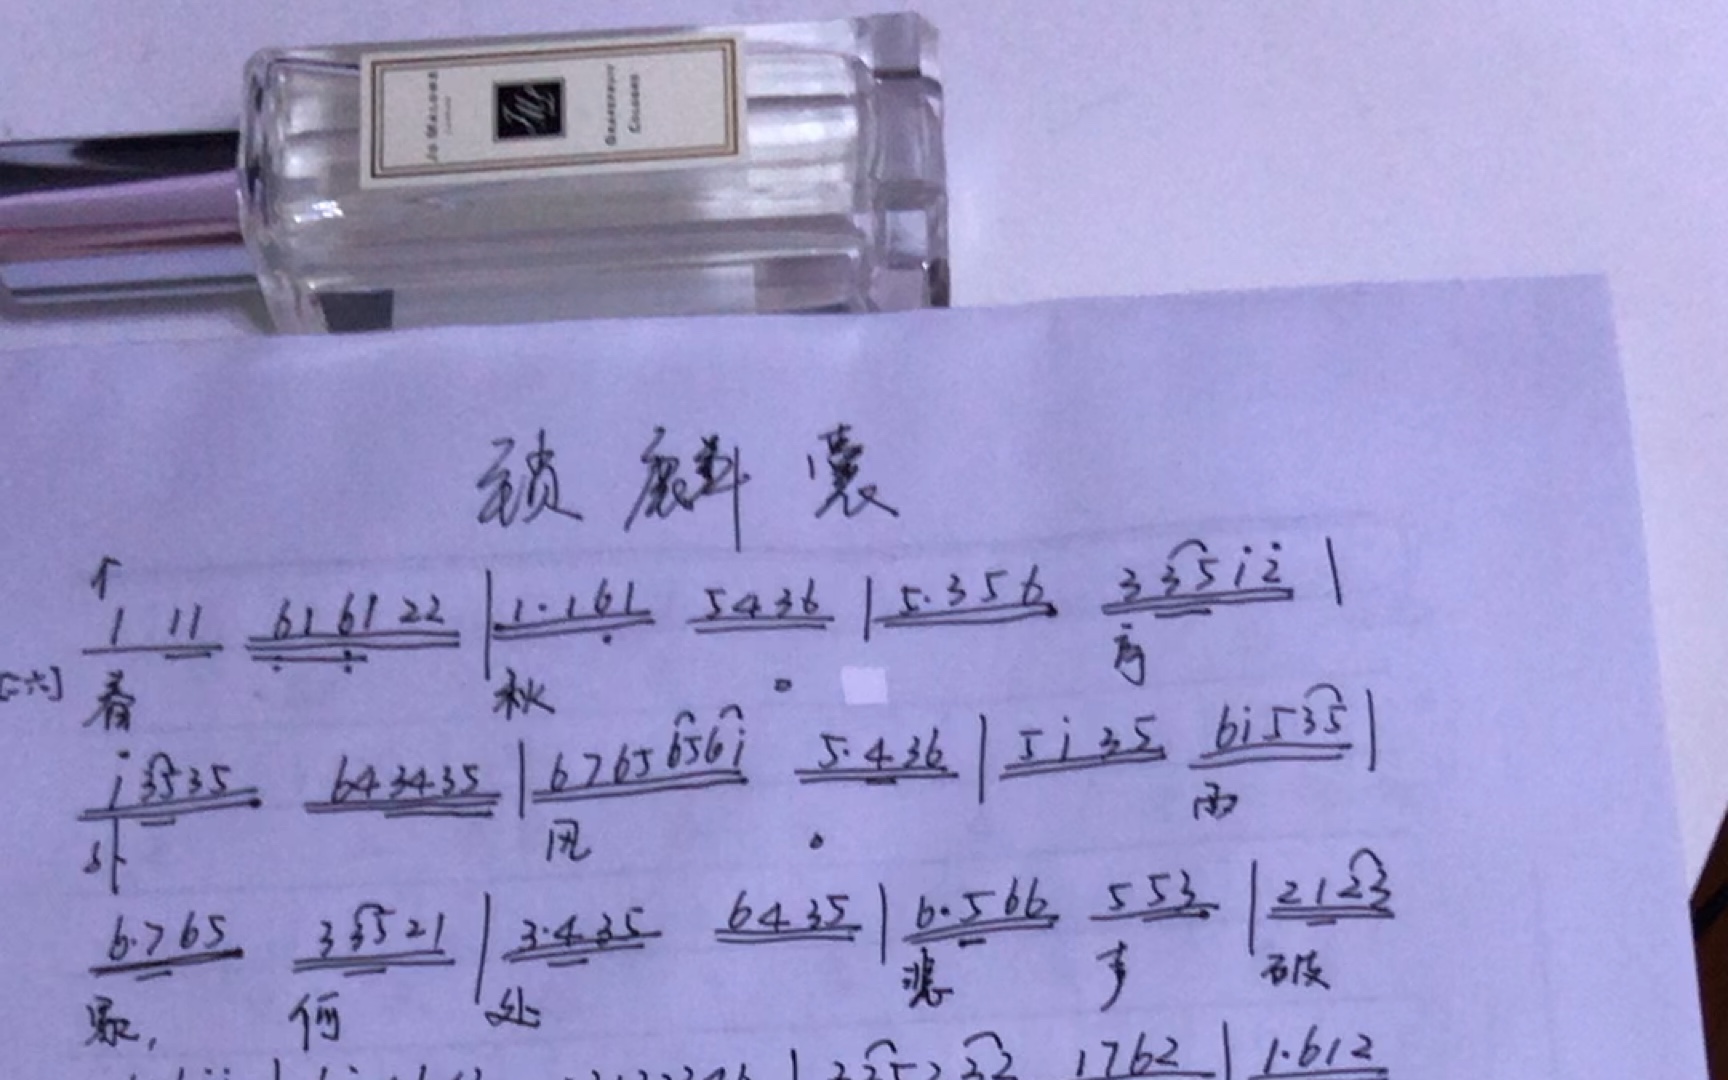 JO MALONE
LONDON
GRAPEFRUIT
COLOGNE
锁 麟 囊
1 11 616122 | 1·161 5436 | 5·356 335i2 |
[二六] 春 秋 。
i3535 643435 | 67656561 5·436 | 5i35 6i535 |
外 风 。 雨
6·765 33521 | 3·435 6435 | 6·566 553 | 2123
何 处 悲 事 破
1762 | 1·612